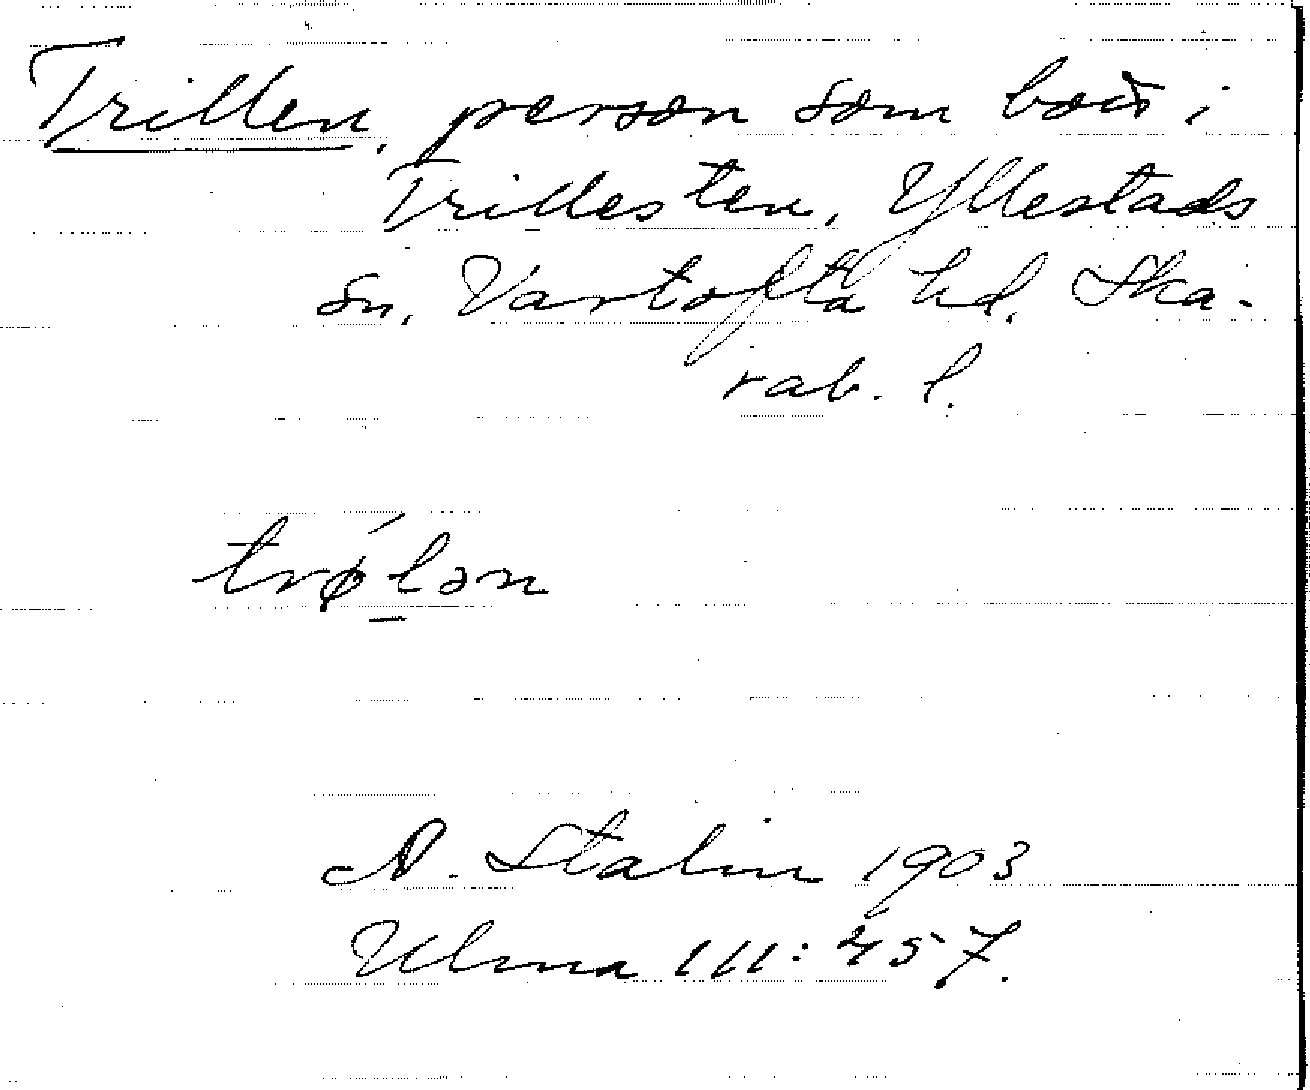 Trillen, person som bott i
Trillesten, Yllestads
sn, Vartofta hd, Ska-
rab. l.
trǿlən
A. Stalin 1903
Ulma 111:457.